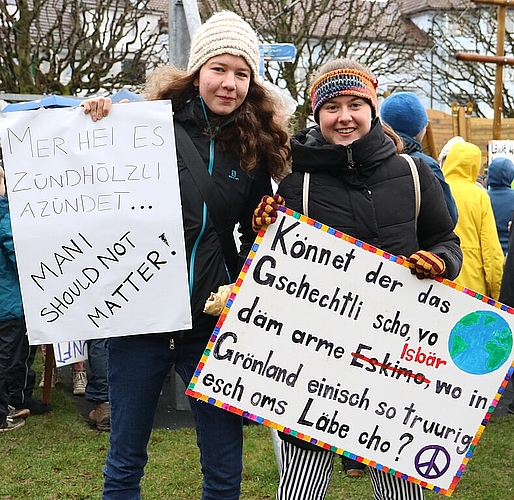 MER HEI ES
ZÜNDHÖLZLI
AZÜNDET...
MANI
SHOULD NOT
MATTER!
Könnet der das
Gschechtli scho vo
däm arme Eskimo, wo in
Isbär
Grönland einisch so truurig
esch oms Läbe cho?